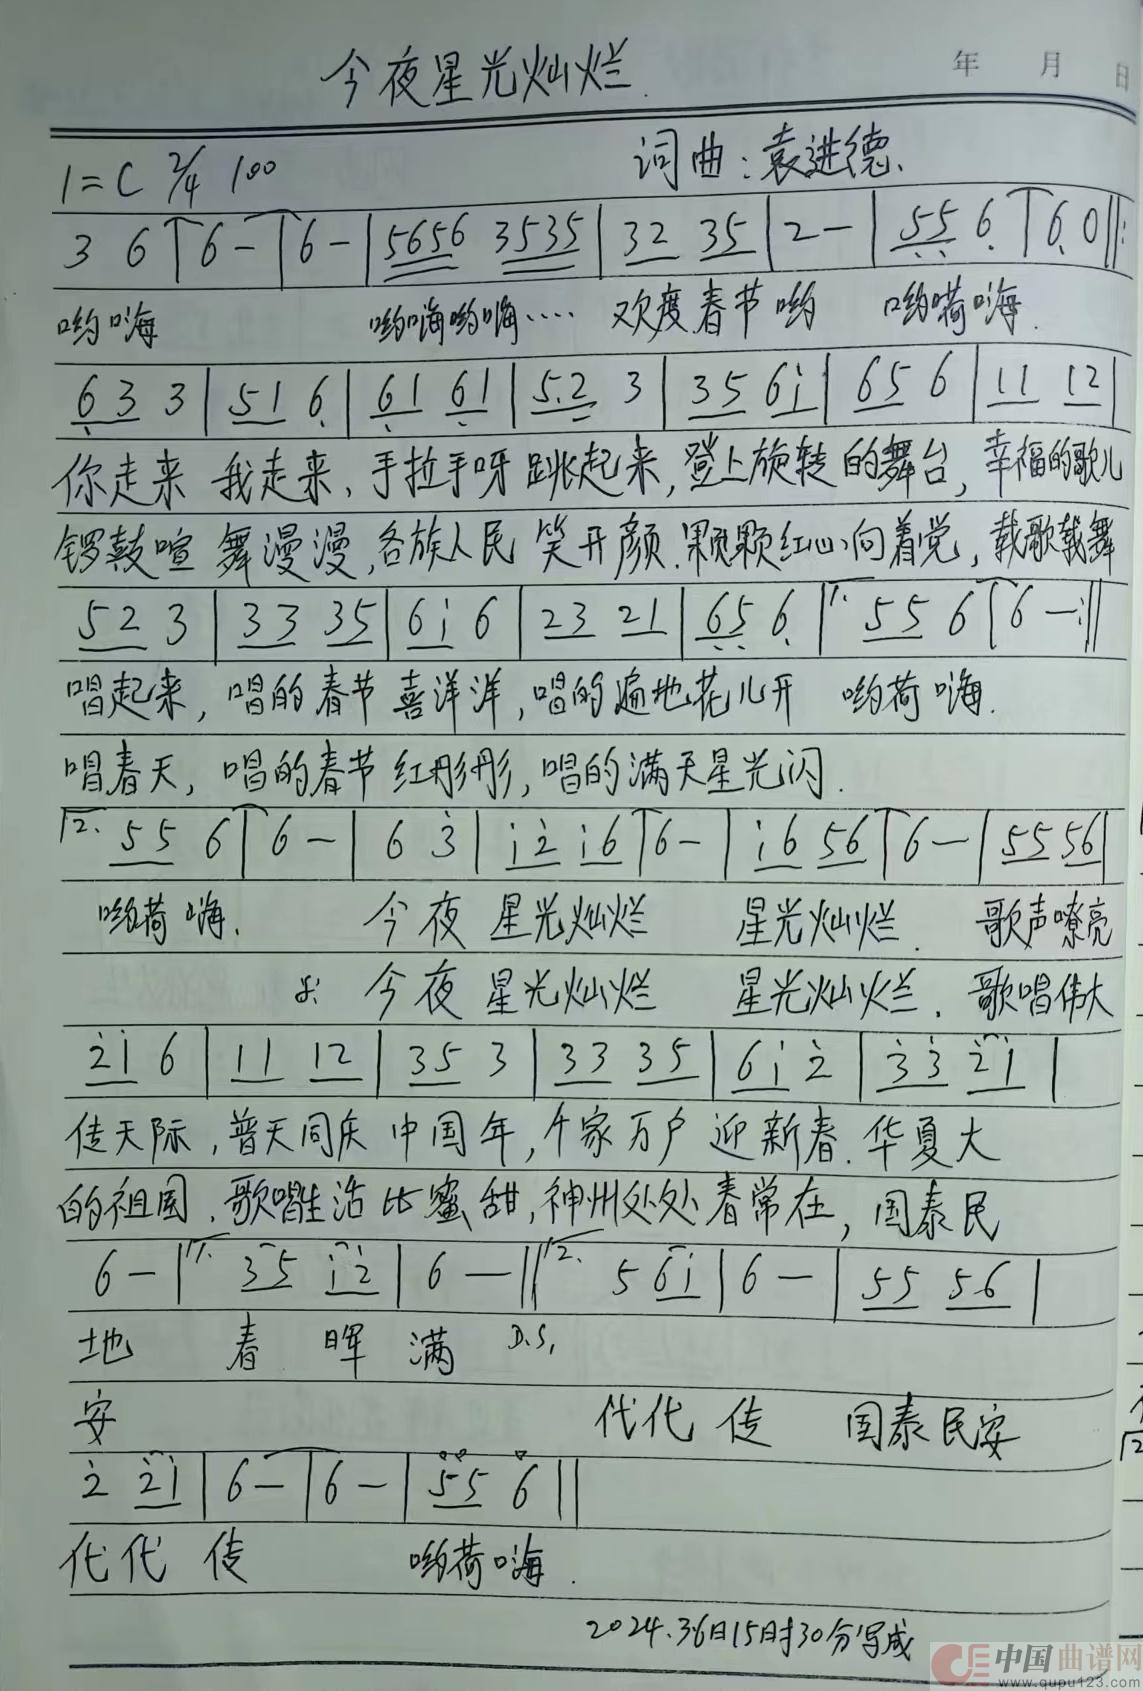 今夜星光灿烂.
年 月 日
1=C 2/4 100 词曲:袁进德.
3 6 | 6 - | 6 - | 5656 3535 | 32 35 | 2 - | 5̣5̣ 6̣ | 6̣ 0 ‖:
哟嗨 哟嗨哟嗨…… 欢度春节哟 哟嗬嗨.
6̣3 3 | 51 6̣ | 6̣1 6̣1 | 5.2 3 | 35 6i | 65 6 | 11 12 |
你走来 我走来、手拉手呀 跳起来,登上旋转的舞台,幸福的歌儿
锣鼓喧 舞漫漫,各族人民 笑开颜.颗颗红心向着党,载歌载舞
52 3 | 33 35 | 6i 6 | 23 21 | 6̣5̣ 6̣ | 1. 55 6 | 6 - :‖
唱起来,唱的春节喜洋洋,唱的遍地花儿开 哟荷嗨.
唱春天,唱的春节红彤彤,唱的满天星光闪.
2. 55 6 | 6 - | 6 3̇ | i2̇ i6 | 6 - | i6 56 | 6 - | 55 56 |
哟荷嗨. 今夜 星光灿烂 星光灿烂. 歌声嘹亮
今夜 星光灿烂 星光灿烂. 歌唱伟大
2̇i 6 | 11 12 | 35 3 | 33 35 | 6i 2̇ | 3̇3̇ 2̇i |
传天际,普天同庆 中国年,千家万户 迎新春.华夏大
的祖国.歌唱生活比蜜甜,神州处处春常在,国泰民
6 - | 1. 35 i2̇ | 6 - ‖ 2. 5 6i | 6 - | 55 56 |
地 春 晖 满 D.S.
安 代代 传 国泰民安
2̇ 2̇i | 6 - | 6 - | 55 6 ‖
代代 传 哟荷嗨.
2024.36日15时30分写成
中国曲谱网
www.qupu123.com